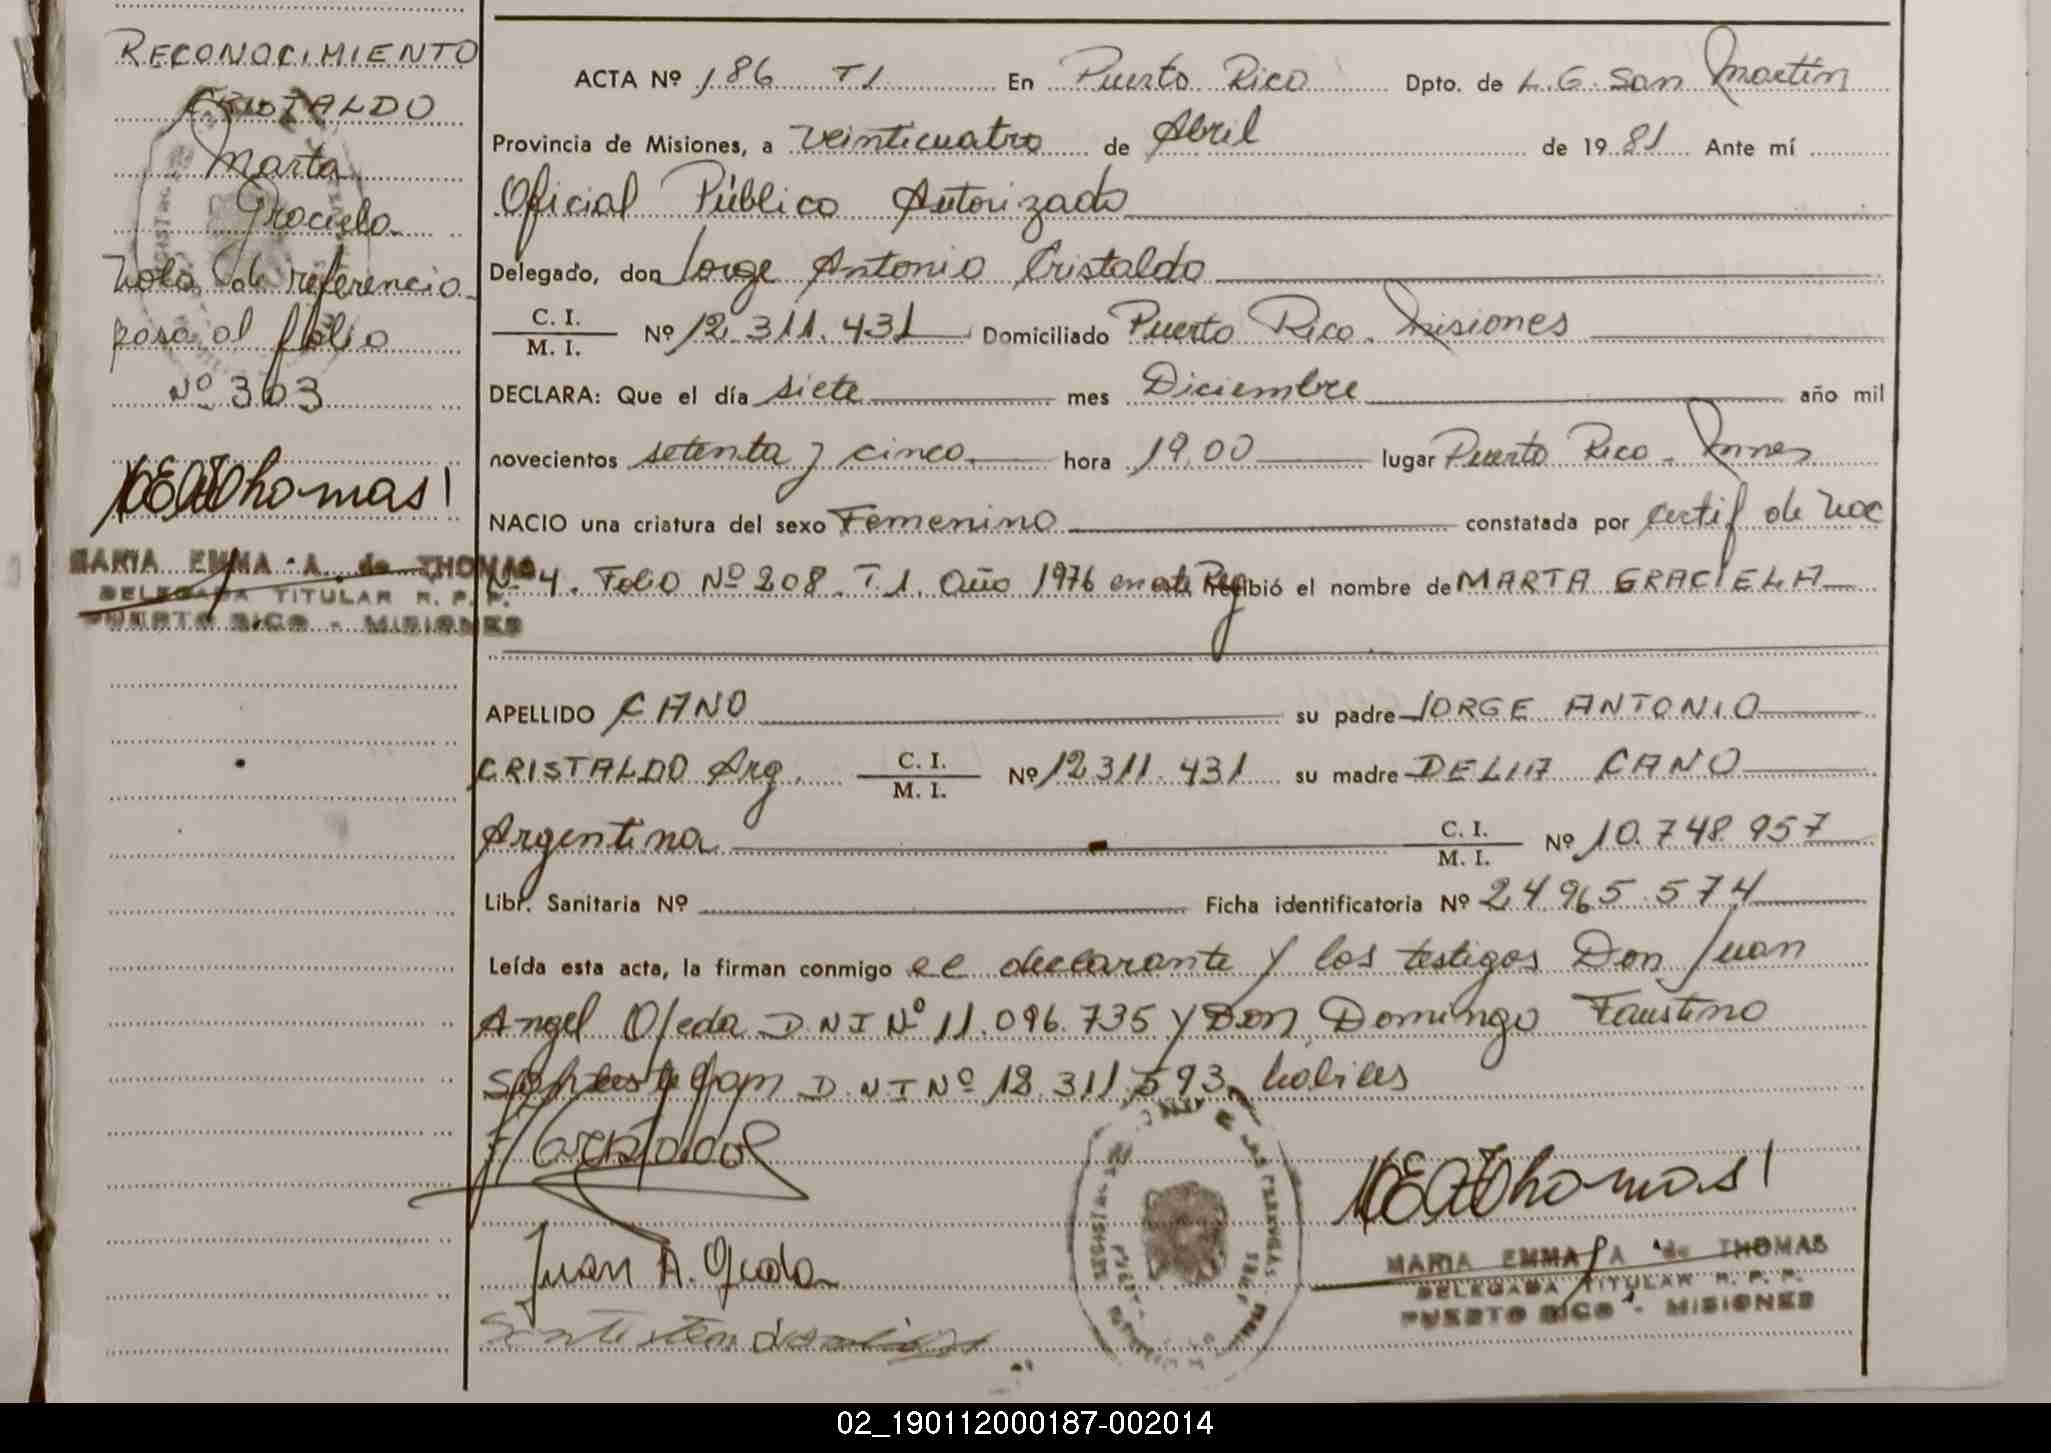 RECONOCIMIENTO
CRISTALDO
Marta
Graciela
Nota de referencia
pasa al folio
Nº 303
MARIA EMMA A. de THOMAS
DELEGADA TITULAR R. P. P.
PUERTO RICO - MISIONES
ACTA Nº 186 T1 En Puerto Rico Dpto. de L.G. San Martín
Provincia de Misiones, a veinticuatro de Abril de 1981 Ante mí
Oficial Público Autorizado
Delegado, don Jorge Antonio Cristaldo
C. I. / M. I. Nº 12.311.431 Domiciliado Puerto Rico. Misiones
DECLARA: Que el día siete mes Diciembre año mil
novecientos setenta y cinco hora 19,00 lugar Puerto Rico - Mnes
NACIO una criatura del sexo Femenino constatada por certif de Nac
Nº 4. Folio Nº 208. T.1. Año 1976 en este Reg recibió el nombre de MARTA GRACIELA
APELLIDO CANO su padre JORGE ANTONIO
CRISTALDO Arg. C. I. / M. I. Nº 12311.431 su madre DELIA CANO
Argentina C. I. / M. I. Nº 10.748.957
Libr. Sanitaria Nº Ficha identificatoria Nº 24965.574
Leída esta acta, la firman conmigo el declarante y los testigos Don Juan
Angel Ojeda D N I Nº 11.096.735 y Don Domingo Faustino
D.N I Nº 12.311.593 hábiles
Juan A. Ojeda
MARIA EMMA A de THOMAS
DELEGADA TITULAR R. P. P.
PUERTO RICO - MISIONES
02_190112000187-002014